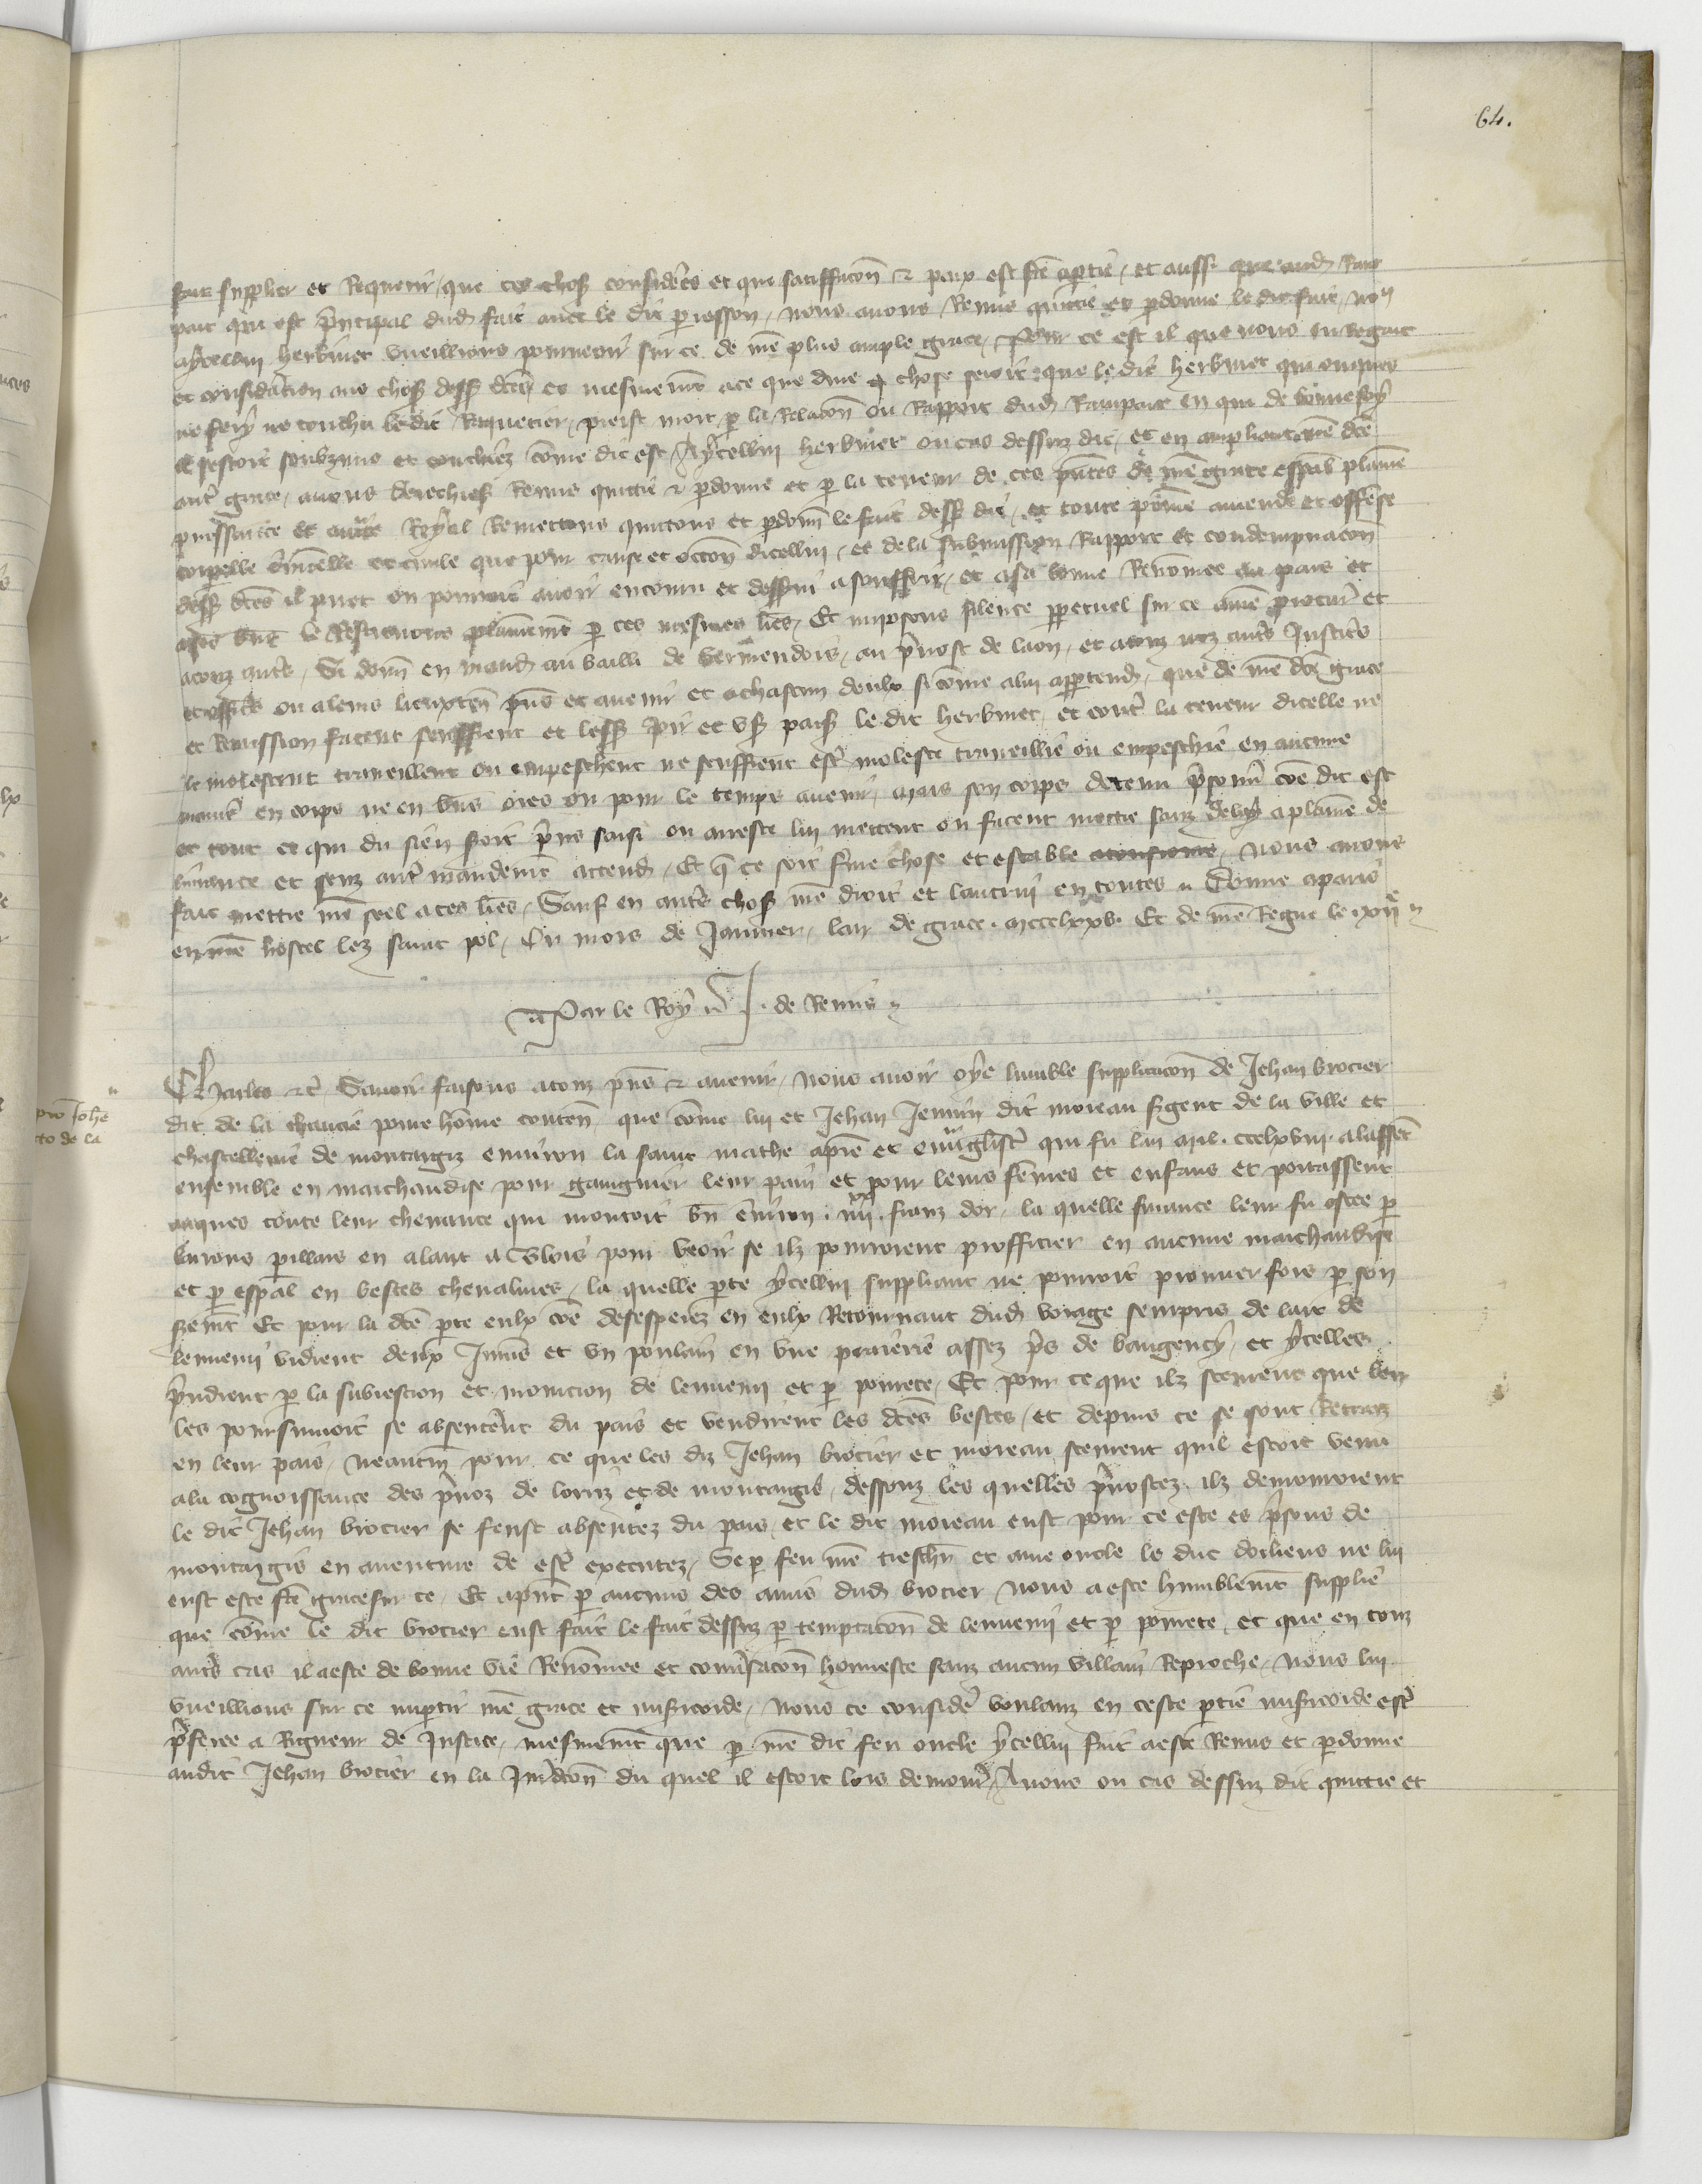 64.
fait supplier et Requerir, que ces choses considerees et que satiffacon & paix est fte a partie, et aussi que aud Ram
part qui est principal dud fait avec le dit piesson, nous avons Remis quittie et pdonne le dit fait, nous
a ycellui herbinet vueillions pourveoir sur ce de nre plus ample grace, Pour ce est il que nous en regart
et consideration aus choses dess dces et mesmemt a ce que dure chose seroit que le dit herbinet qui onques
ne fery ne toucha le dit Raquetier, preist mort p la Relacon ou Rapport dud Rampart en qui de bonne foy
il sestoit soubzmis et couchiez come dit est, A ycellui herbinet ou cas dessuz dit, et en ampliant nre dce
autre grace, avons derechief Remis quittie & pdonne et p la teneur de ces pntes de nre grace espal plaine
puissance et auctte Royal Remettons quittons et pdonns le fait dess dit, et toute peinne amende et offense
corpelle criminelle et civile que pour cause et occon dicellui, et de la submission Rapport et condempnacon
dess dces il puet ou pourroit avoir encouru et desservi a souffrir, et a sa bonne Renommee au pais et
a ses biens le Restituons plainemt p ces mesmes lres, Et imposons silence ppetuel sur ce a nre procur et
a touz autres, Si donns en mand au bailli de Vermendois, au prevost de laon, et a touz noz autres Justiciers
et officiers ou a leurs lieuxten pns et avenir et a chascun deulx si come a lui appartend, que de nre dce grace
et Remission facent seuffrent et lessent joir et user paisiblement le dit herbinet, et contre la teneur dicelle ne
le molestent traveillent ou empeschent ne seuffrent estre moleste traveillie ou empeschie en aucune
maniere en corps ne en biens ores ou pour le temps avenir, mais son corps detenu prisonnier coe dit est
et tout ce qui du sien soit prins saisi ou arreste lui mettent ou facent mettre sanz delay a plaine de
livrance et senz autre mandemt attendre, Et q ce soit ferme chose et estable a tousjours, Nous avons
fait mettre nre seel a ces lres, Sauf en autres choses nre droit et lautrui en toutes. Donne a paris
en nre hostel lez saint pol, Ou mois de Janvier, lan de grace. mccclxxv. Et de nre Regne le xije
Par le Roy J. de Remis
Charles &c Savoir faisons a touz pns & avenir, Nous avoir oye lumble supplicacon de Jehan brocier
dit de la chaucie povre homme conten que come lui et Jehan Jennin dit moreau sergent de la ville et
chastellerie de montargiz environ la saint mathe apre et euvgliste qui fu lan mil. ccclxviij. alassent
ensemble en marchandise pour gaingnier leur pain et pour leurs femmes et enfans et portassent
avques toute leur chevance qui montoit bn environ iiijxx frans dor, la quelle finance leur fu ostee p
larrons pillars en alant a Blois pour veoir se ilz pourroient proffiter en aucune marchandise
et p espal en bestes chevalines, la quelle pte ycellui suppliant ne pourroit prouver fors p son
sermt Et pour la dce pte eulx coe desesperez en eulx Retournant dud voiage sempris de lart de
lennemi vidrent deux Jumens et un poulain en une praerie assez pres de baugency, et ycelles
prindrent p la subiestion et monicion de lennemi et p povrete, Et pour ce que ilz sceurent que len
les poursuivoit se absenterent du pais et vendirent les dces bestes, et depuis ce se sont Retraiz
en leur pais, neantm pour ce que les diz Jehan brocier et moreau sceurent quil estoit venu
a la cognoissance des prevoz de lorriz et de montargis, dessouz les quelles prevostez ilz demouroient
le dit Jehan brocier se feust absentez du pais, et le dit moreau eust pour ce este es prisons de
montargis en aventure de estre executez, Se p feu nre treschr et ame oncle le duc dorliens ne lui
eust este fte grace sur ce, Et aprent p aucuns des amis dud brocier nous a este humblemt supplie
que come le dit brocier eust fait le fait dessuz p temptacon de lennemi et p povrete, et que en touz
autres cas il a este de bonne vie Renommee et conversacon honneste sanz aucun villain Reproche, Nous lui
vueillions sur ce impartir nre grace et misericorde, Nous ce considere voulanz en ceste partie misericorde estre
preferee a Rigueur de Justice, mesmemt que p nre dit feu oncle ycellui fait a este Remis et pdonne
audit Jehan brocier en la Juridicon du quel il estoit lors demourant, Avons ou cas dessuz dit quittie et
pro Johe
to de la